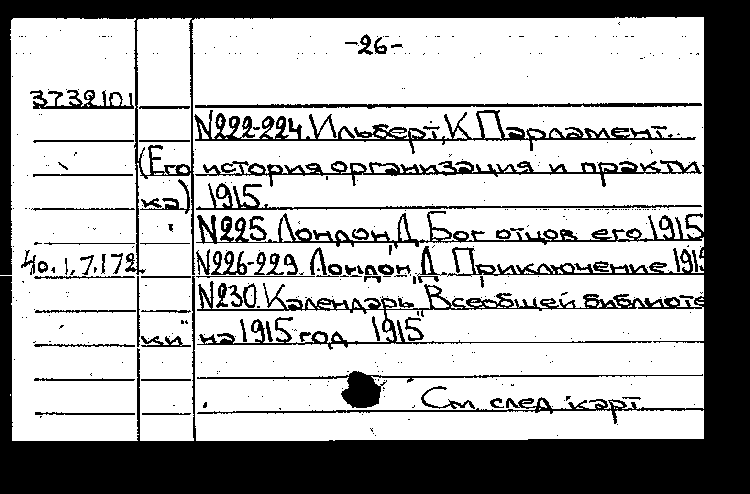 -26-
37.32.101
N222-224. Ильберт, К Парламент.
(Его история, организация и практи
ка) 1915.
N225. Лондон, Д. Бог отцов его. 1915
40.1.7.172. N226-229. Лондон, Д. Приключение. 1915
N230. Календарь "Всеобщей библиоте
ки" на 1915 год. 1915
См. след. карт.